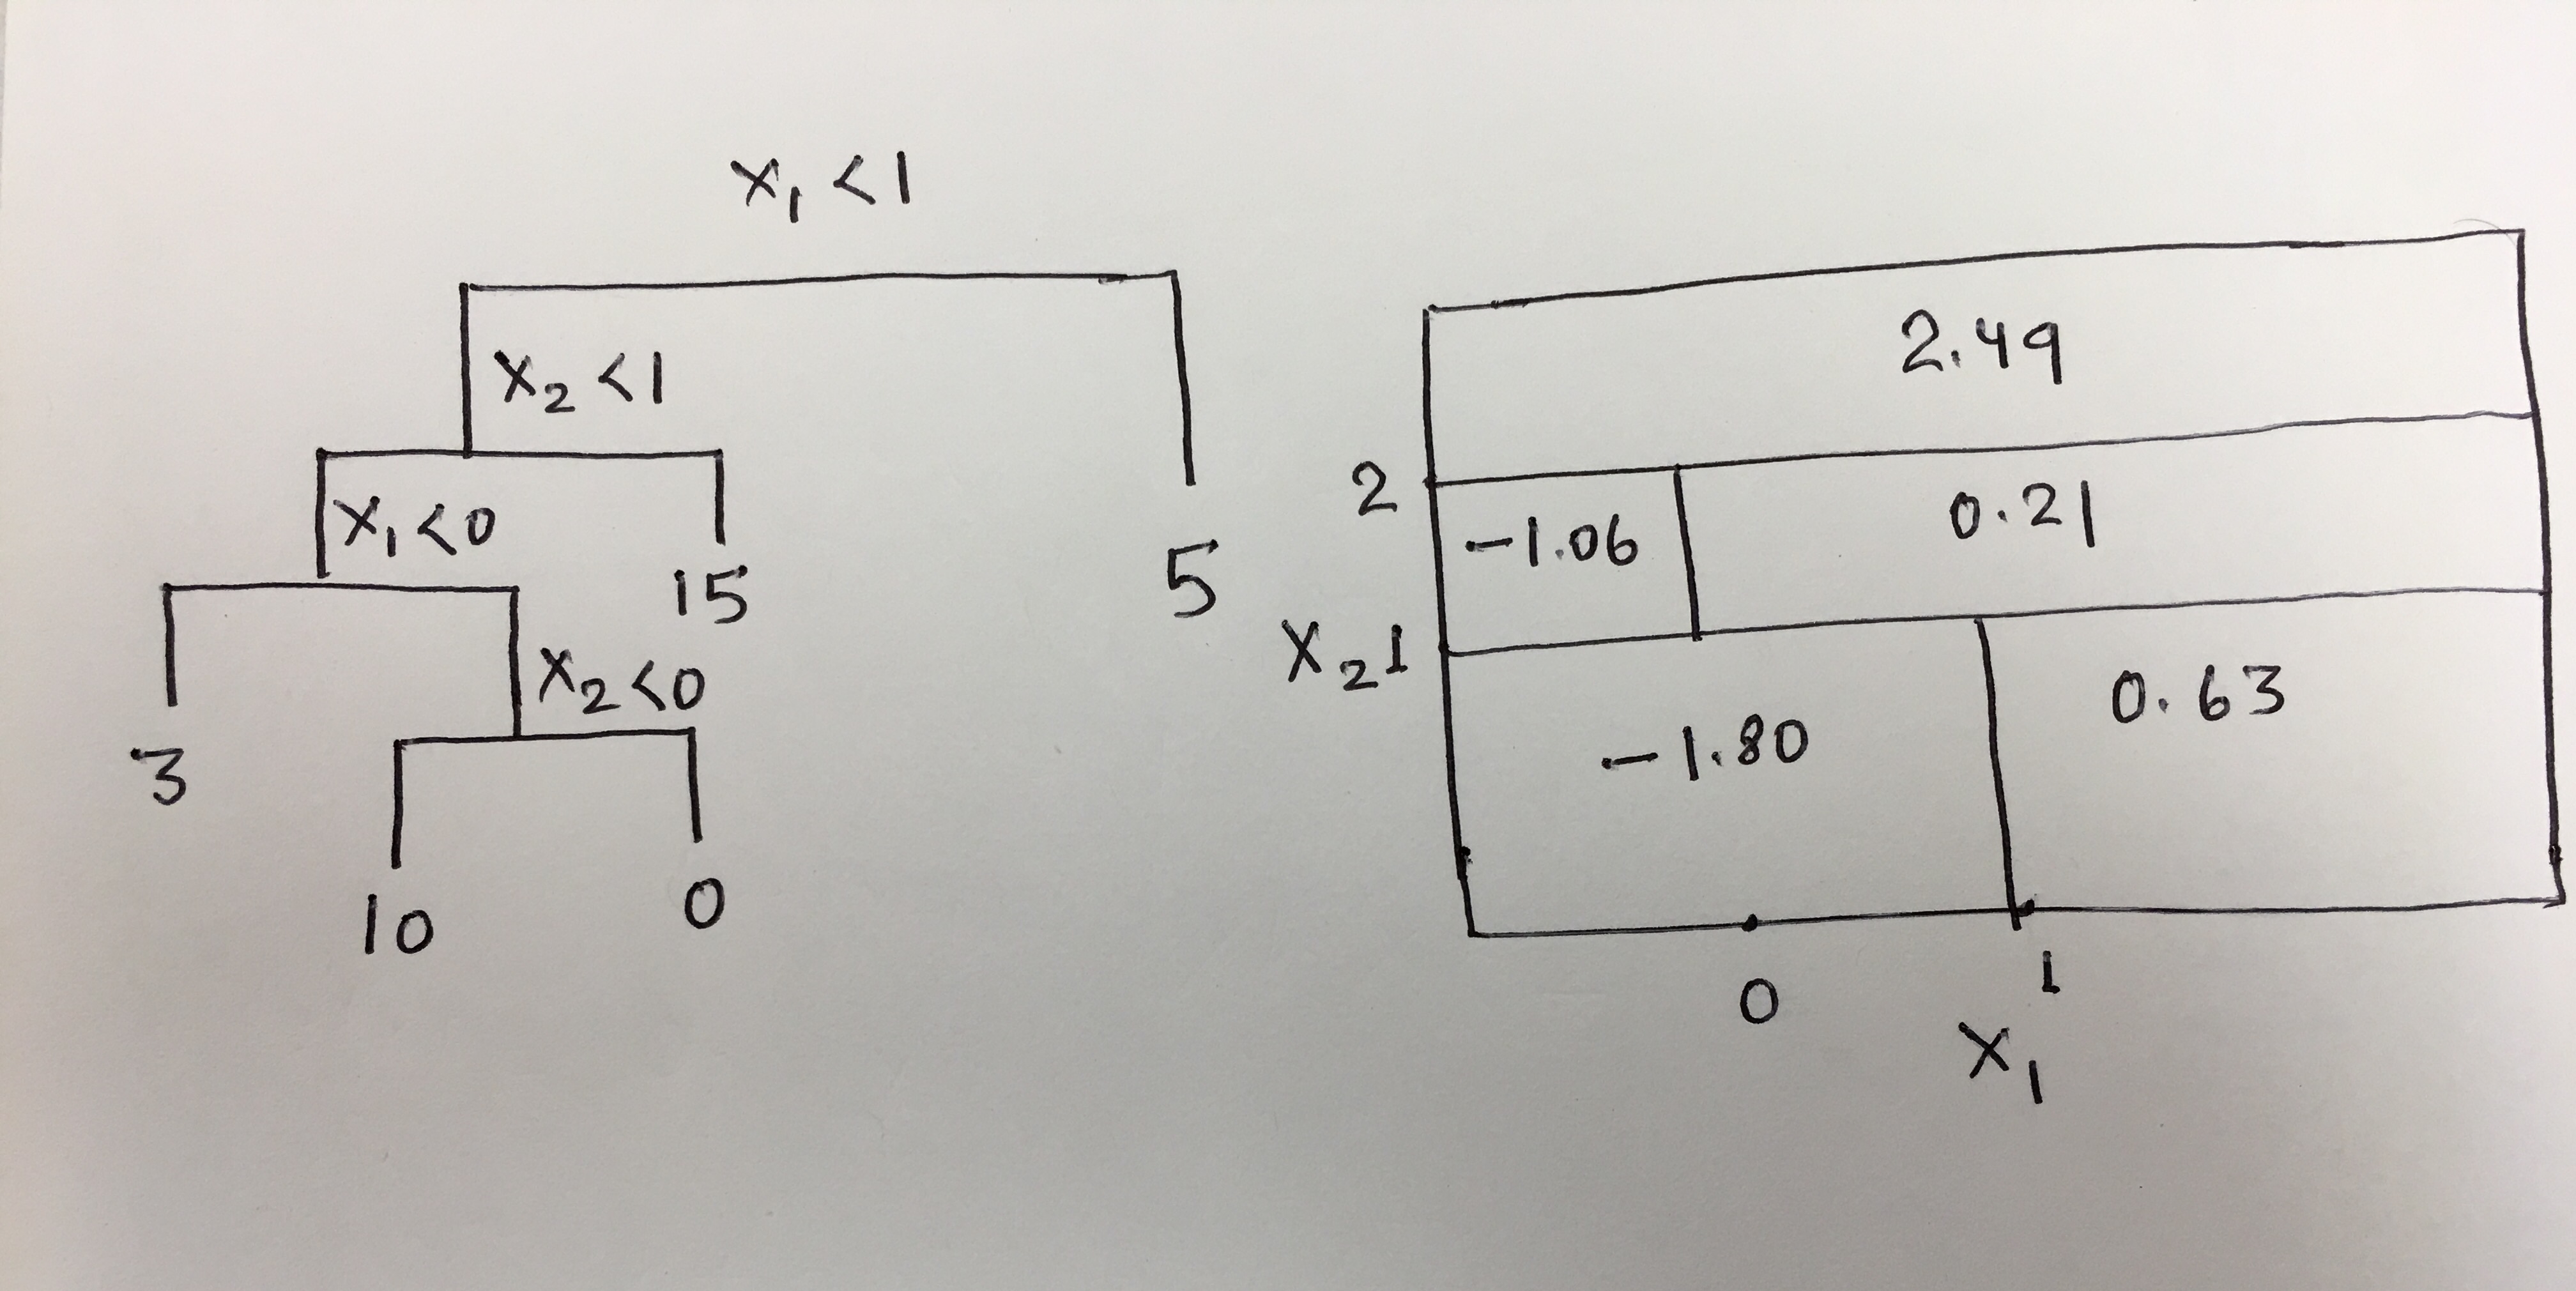 X₁ <1
X₂ <1
X₁ <0
15
5
3
X₂ <0
10
0
2.49
2
-1.06
0.21
X₂ 1
-1.80
0.63
0
1
X₁